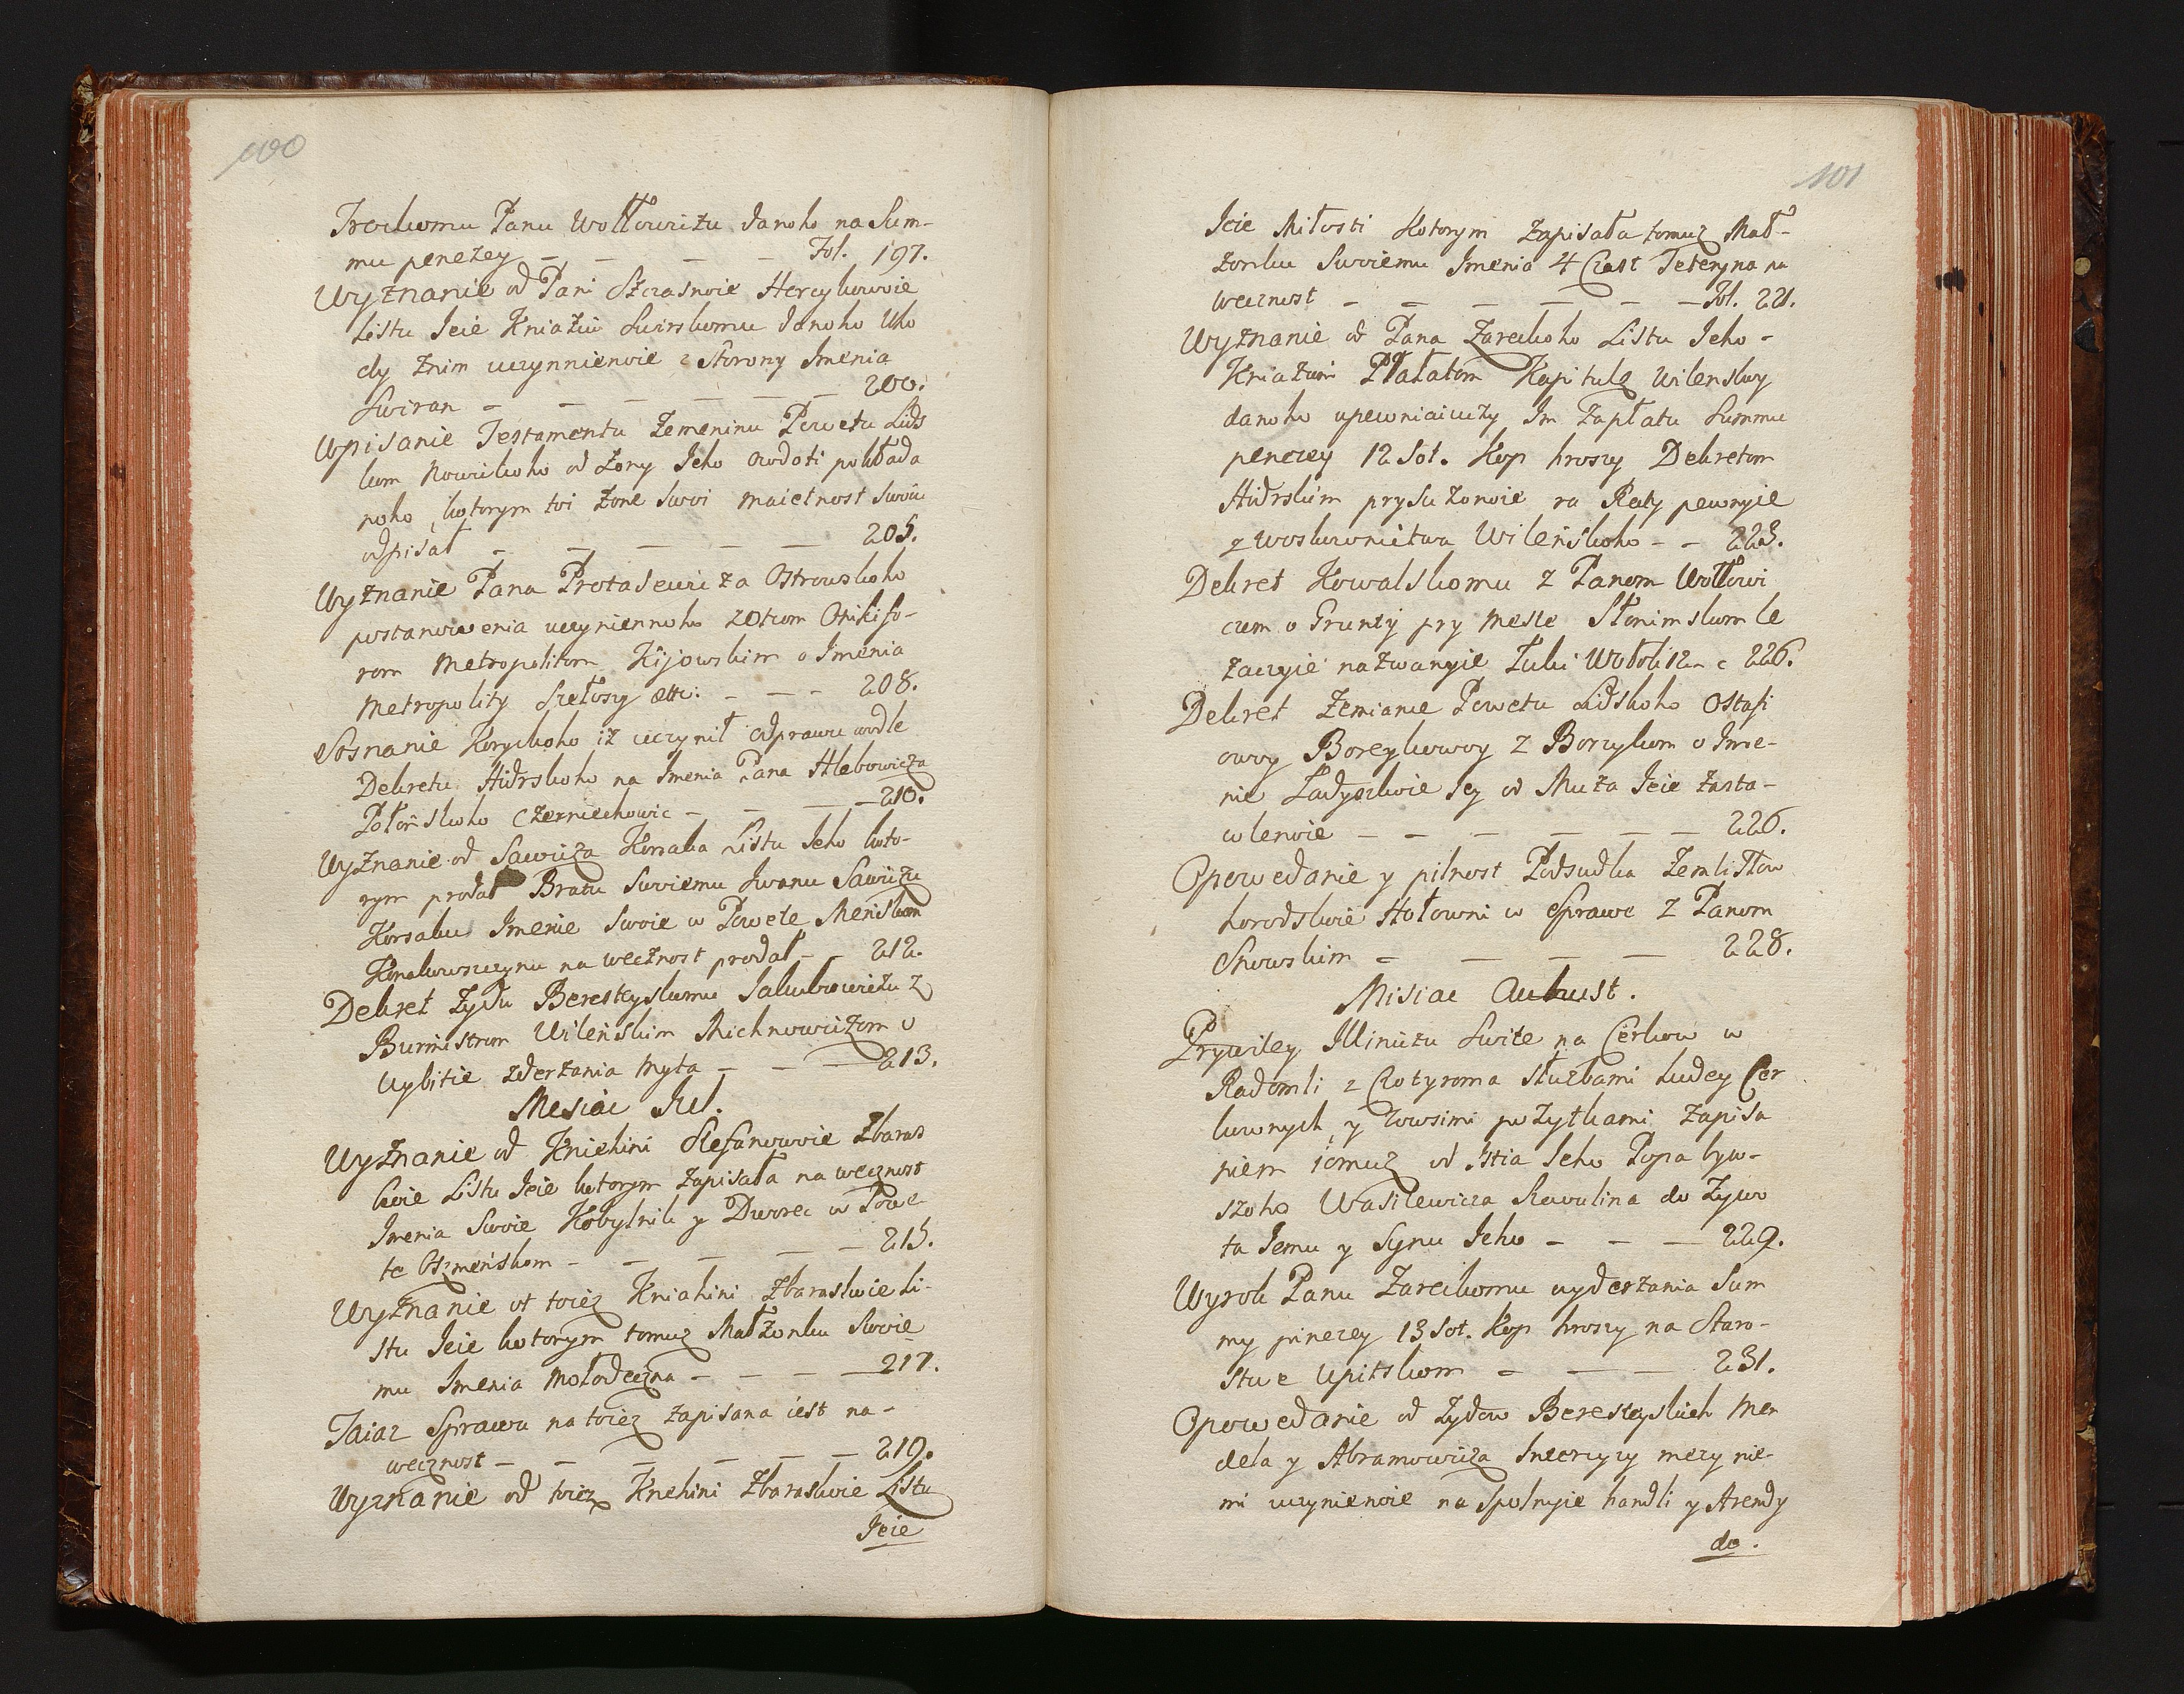 100
Trockomu Panu Wołłowiżu danoho na Sum-
mu penezey — — — — Fol. 197.
Wyznanie od Pani Szczasnoie Hercykowoie
Listu Jeie Kniaziu Swirskomu danoho Uho
dy znim uczynnienoie z Storony Imenia
Swiran — — — — — — 200.
Upisanie Testamentu Zemeninu Powetu Lids
kom Nowickoho od Zony Jeho Owdoti pokłada
noho, kotorym toi Zone Swoi maietnost Swoiu
odpisał — — — — — 205.
Wyznanie Pana Protasewiża Ostrowskoho
postanowenia uczyniennoho z Otcom Onikifo-
rom Metropolitom Kijowskim o Imenia
Metropolity Siełoszy etc: — — — 208.
Soznanie Koryckoho iż uczynił odprawu wodle
Dekretu Hidrskoho na Imenia Pana Hlebowicza
Połoń skoho Czerniechowic — — — 210.
Wyznanie od Sawicza Korsaka Listu Jeho koto-
rym prodał Bratu Swoiemu Iwanu Sawiczu
Korsaku Imenie Swoie w Powete Menskom
Konakowszczynu na wecznost prodał — — 212.
Dekret Zydu Beresteyskomu Jakubowiczu z
Burmistrom Wileńskim Michnowiczom o
Uybitie zderżania Myta — — — 213.
Mesiac Jul.
Wyznanie od Kniehini Stefanowoie Zbaras
koie Listu Jeie kotorym Zapisała na wecznost
Imenia Swoie Kobylnik y Dworec w Powe-
te Oszmeńskom — — — — — 215.
Wyznanie ot toież Kniahini Zbaraskoie Li-
stu Jeie kotorym tomuż Małżonku Swoie
mu Imenia Mołodeczna — — — — 217.
Taiaz Sprawa na toież zapisana iest na-
wecznost — — — — — — 219.
Wyznanie od toież Knehini Zbaraskoie Listu
Jeie
101
Jeie Miłosti Kotorym Zapisała tomuż Mał-
żonku Swoiemu Imenia 4 Czast Teteryna na
wecznost — — — — — — Fol. 221.
Wyznanie od Pana Zareckoho Listu Jeho-
Kniazioni Płałatom Kapitulę Wilenskoy
danoho upewniaiuczy Im Zapłatu Summu
penezey 12 Sot. Kop hroszy Dekretom
Hidrskim prysuzonoie na Raty pewnyie
z woskownictwa Wileńskoho — — 223.
Dekret Kowalskomu z Panom Wołłowi
czem o Grunty pry meste Słonimskom le
żaczyie nazwanyie Łuki Wołoli 12 — c 226.
Dekret Zemiance Powetu Lidskoho Ostafi
owoy Boreykowoy z Boreykom o Ime-
nie Ładyszkoie Jey od Muża Jeie zasta-
wlenoie — — — — — — 226.
Opowedanie y pilnost Podsudka Zemli Słow
horodskoie Hołowni w Sprawe z Panom
Snowskim — — — — 228.
Misiac Auhust.
Prywiley Illiniczu Switc na Cerkow w
Radomli z Czotyroma służbami ludey Cer
kownych y zowsimi pożytkami zapisa
niem iomuż od Istia Jeho Popa byw-
szoho Wasilewicza Stawulina do Żywo
ta Jemu y Synu Jeho — — — 229.
Wyrok Panu Zareckomu uyderżania Sum
my pinezey 13 Sot. Kop hroszy na Staro-
stwe Upitskom — — — 231.
Opowedanie od Zydow Beresteyskich Men
dela y Abramowicza Intercyzy mezy nie-
mi uczynienoie na Spolnyie handli y Arendy
do.